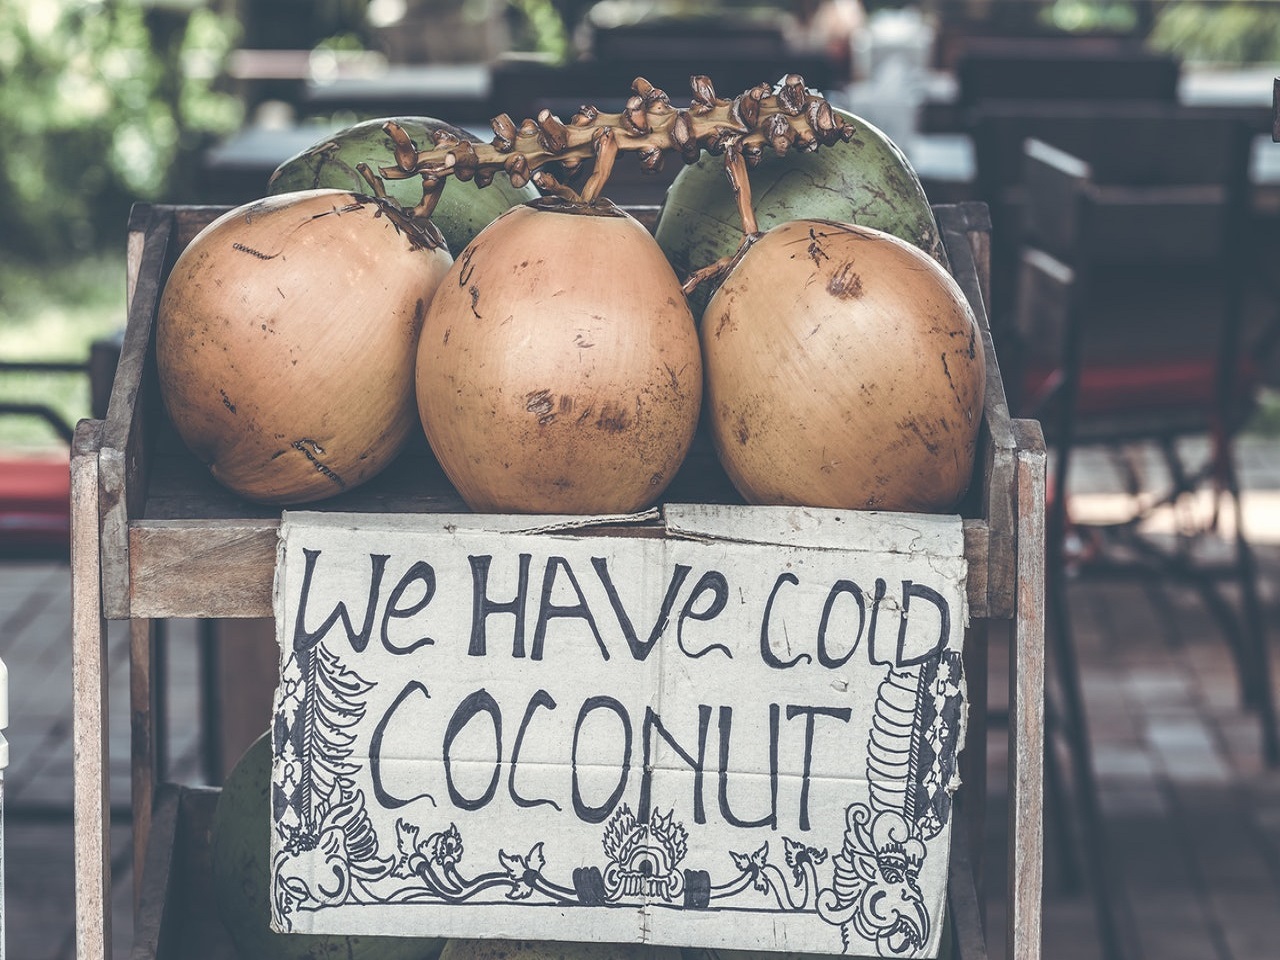 We HAVe COlD
COCONUT